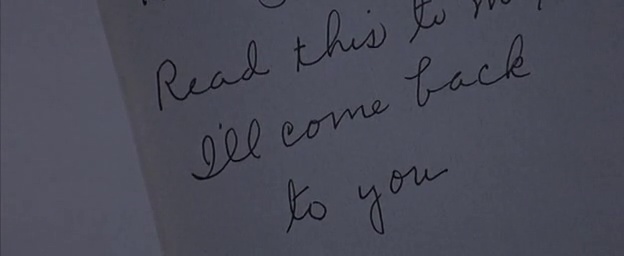 Read this to me,
I'll come back
to you